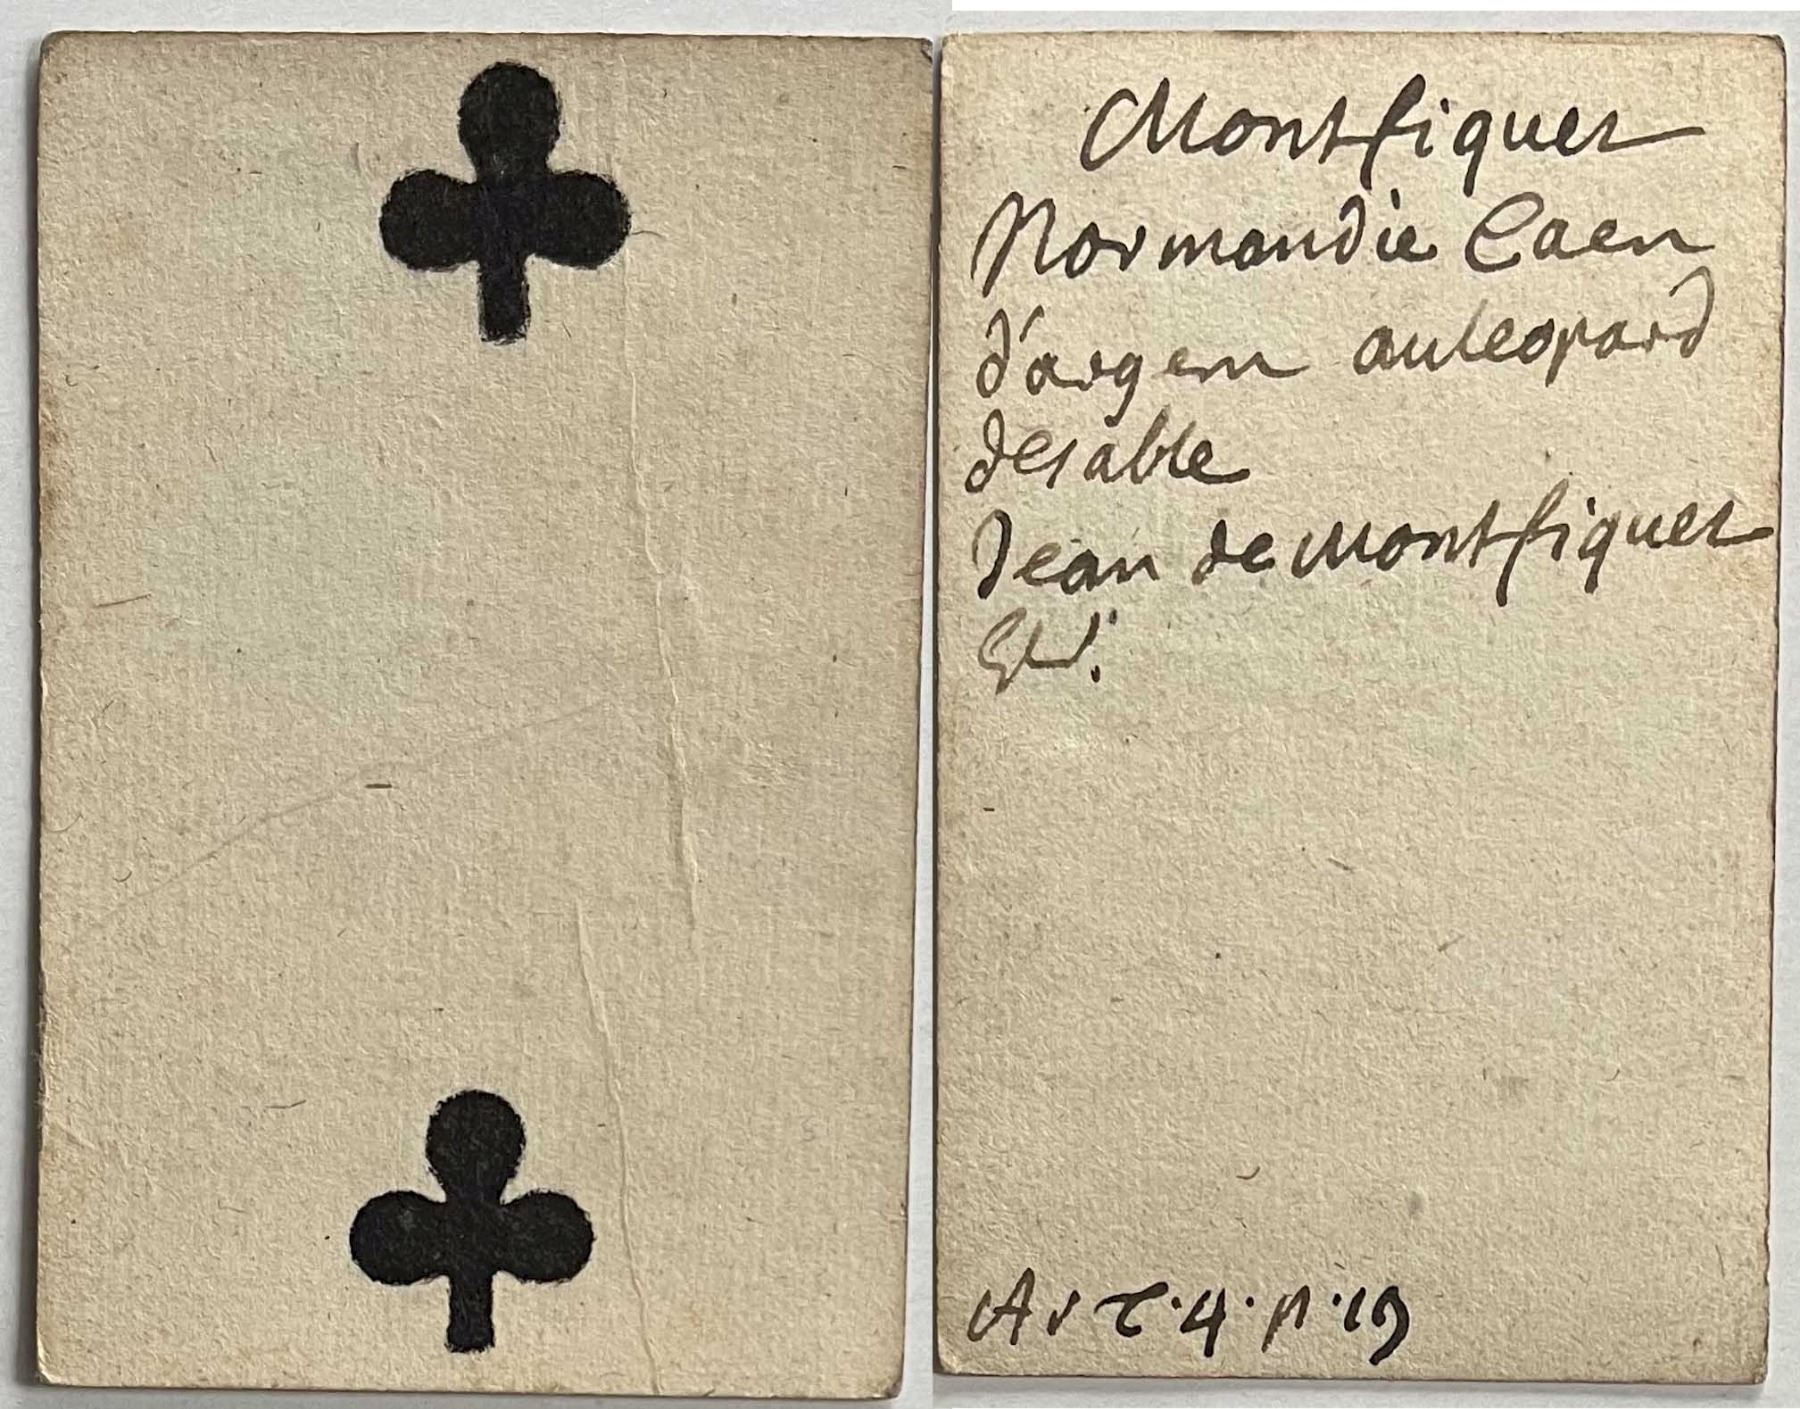 Montfiquet
Normandie Caen
d'argent auleopard
desable
Jean de Montfiquet
Ar T. 4. p. 19